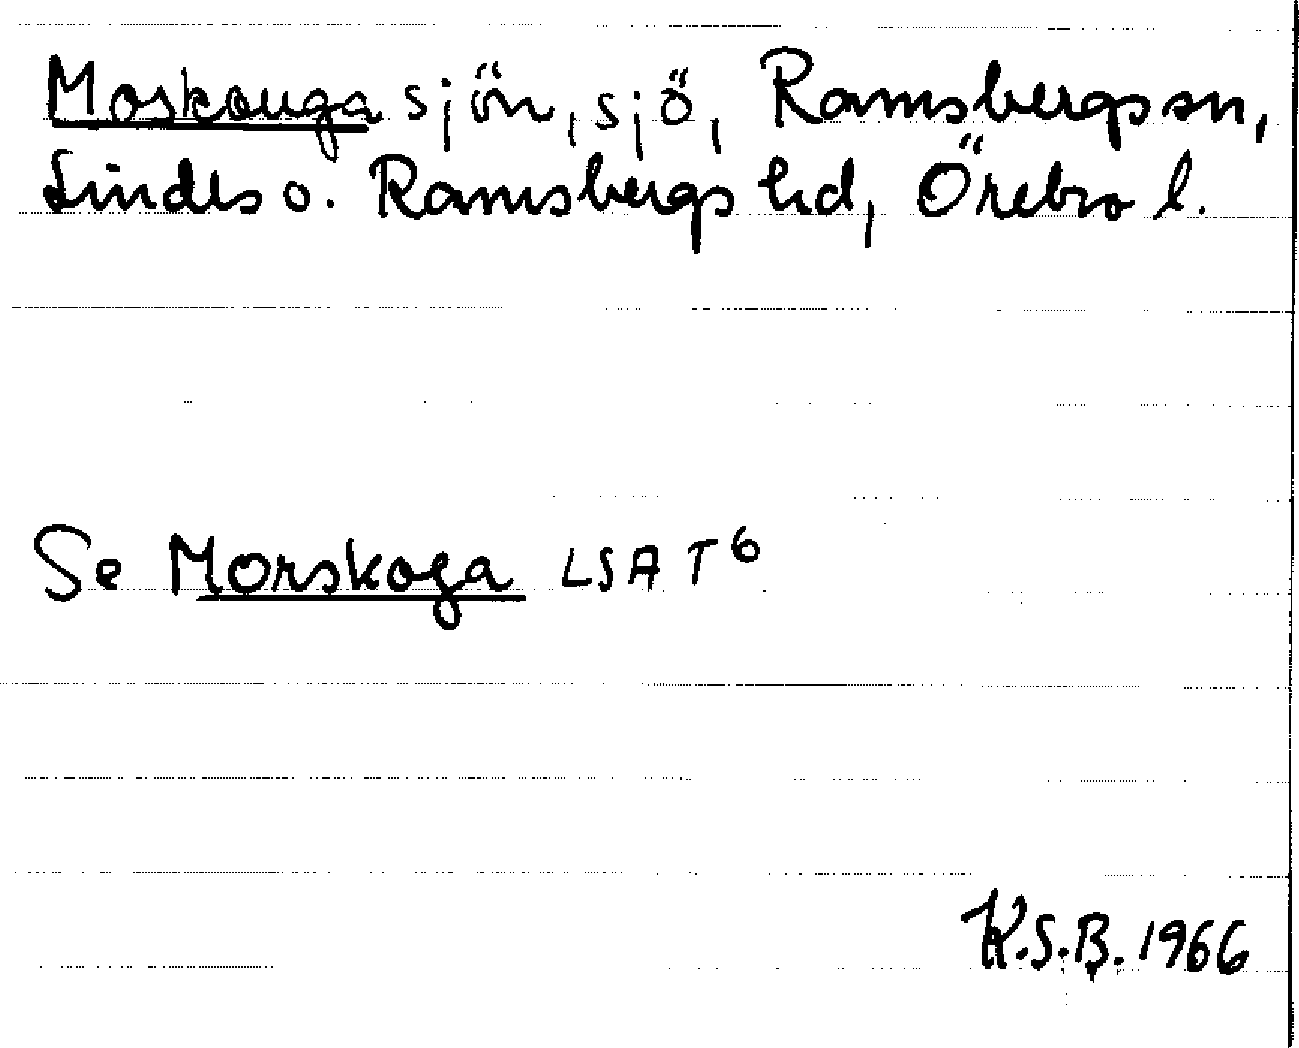 Moskouga sjön, sjö, Ramsbergs sn,
Lindes o. Ramsbergs hd, Örebro l.
Se Morskoga LSA T6
K.S.B. 1966